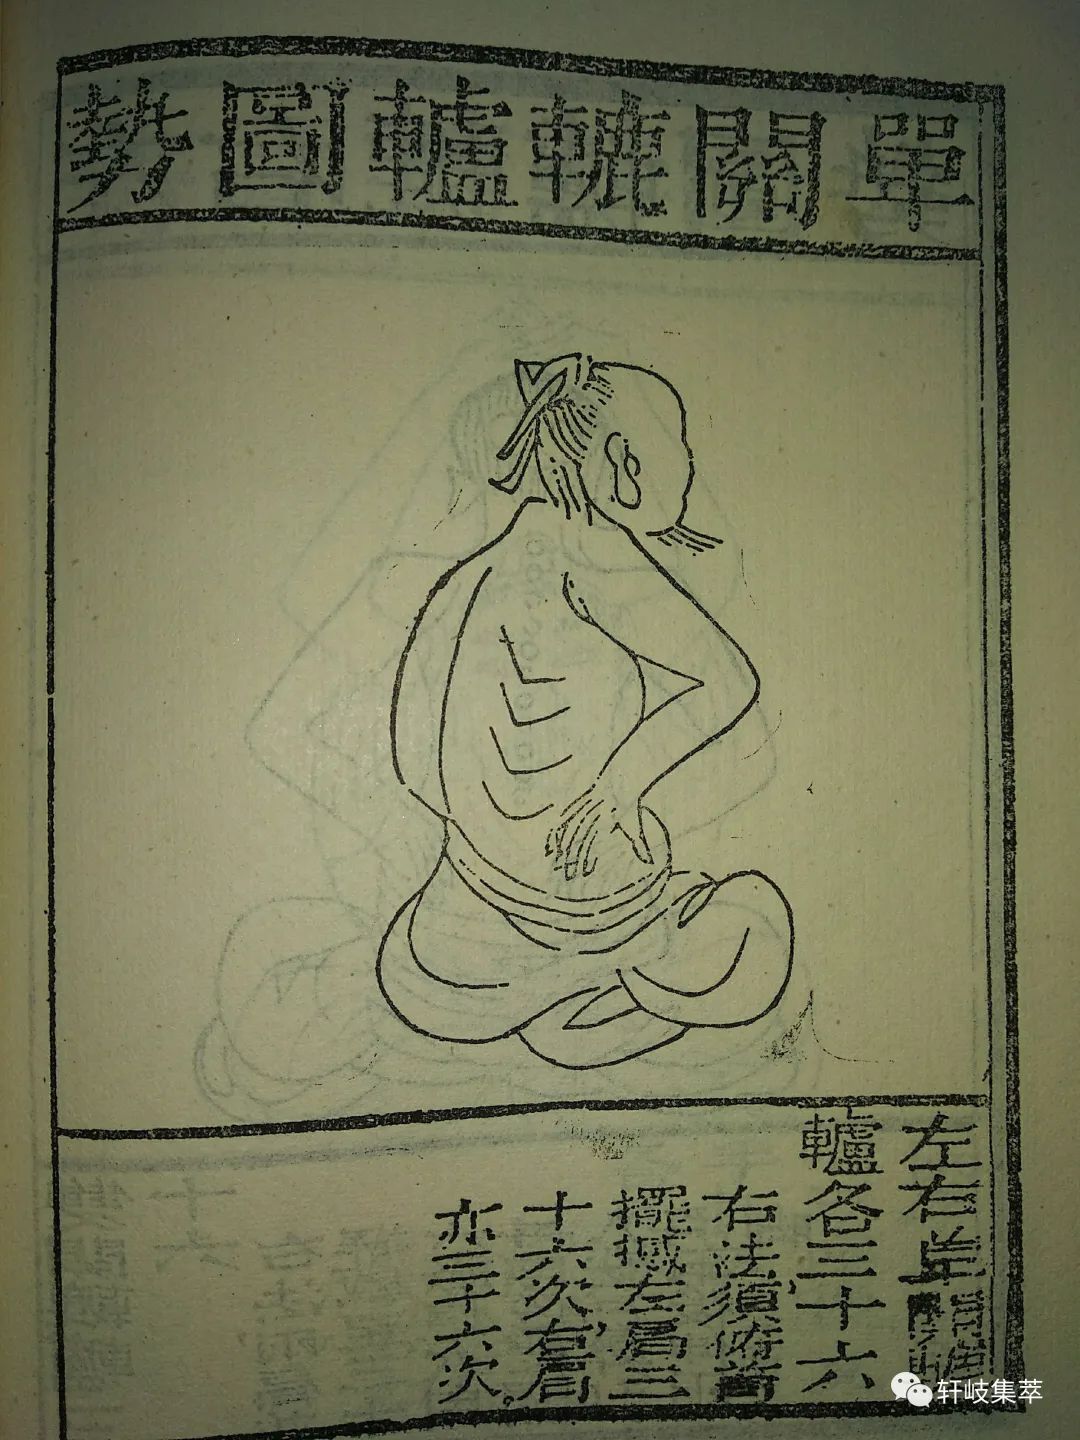 單關轆轤圖勢
左右單關轆
轤各三十六
右法須俯首
擺撼左肩三
十六次，右肩
亦三十六次。
轩岐集萃